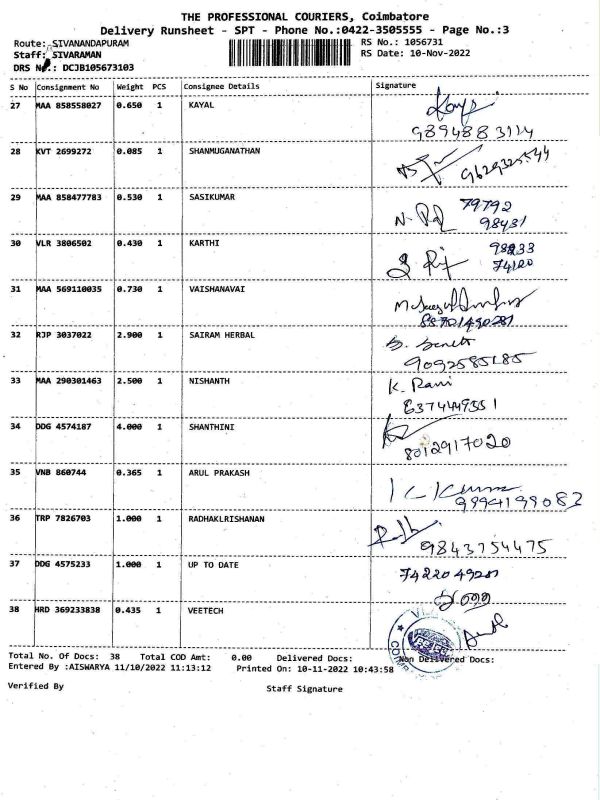 THE PROFESSIONAL COURIERS, Coimbatore
Delivery Runsheet - SPT - Phone No.:0422-3505555 - Page No.:3
Route: SIVANANDAPURAM RS No.: 1056731
Staff: SIVARAMAN RS Date: 10-Nov-2022
DRS No.: DCJB105673103
S No Consignment No Weight PCS Consignee Details Signature
27 MAA 858558027 0.650 1 KAYAL
9894883114
28 KVT 2699272 0.085 1 SHANMUGANATHAN
9629325544
29 MAA 858477783 0.530 1 SASIKUMAR 79792
98431
30 VLR 3806502 0.430 1 KARTHI 98233
74120
31 MAA 569110035 0.730 1 VAISHANAVAI
88701490281
32 RJP 3037022 2.900 1 SAIRAM HERBAL
9092585185
33 MAA 290301463 2.500 1 NISHANTH K. Rani
6374449551
34 DDG 4574187 4.000 1 SHANTHINI
8012917020
35 VNB 860744 0.365 1 ARUL PRAKASH
9994199082
36 TRP 7826703 1.000 1 RADHAKLRISHANAN
9843754475
37 DDG 4575233 1.000 1 UP TO DATE
38 HRD 369233838 0.435 1 VEETECH
Total No. Of Docs: 38 Total COD Amt: 0.00 Delivered Docs: Non Delivered Docs:
Entered By :AISWARYA 11/10/2022 11:13:12 Printed On: 10-11-2022 10:43:58
Verified By Staff Signature